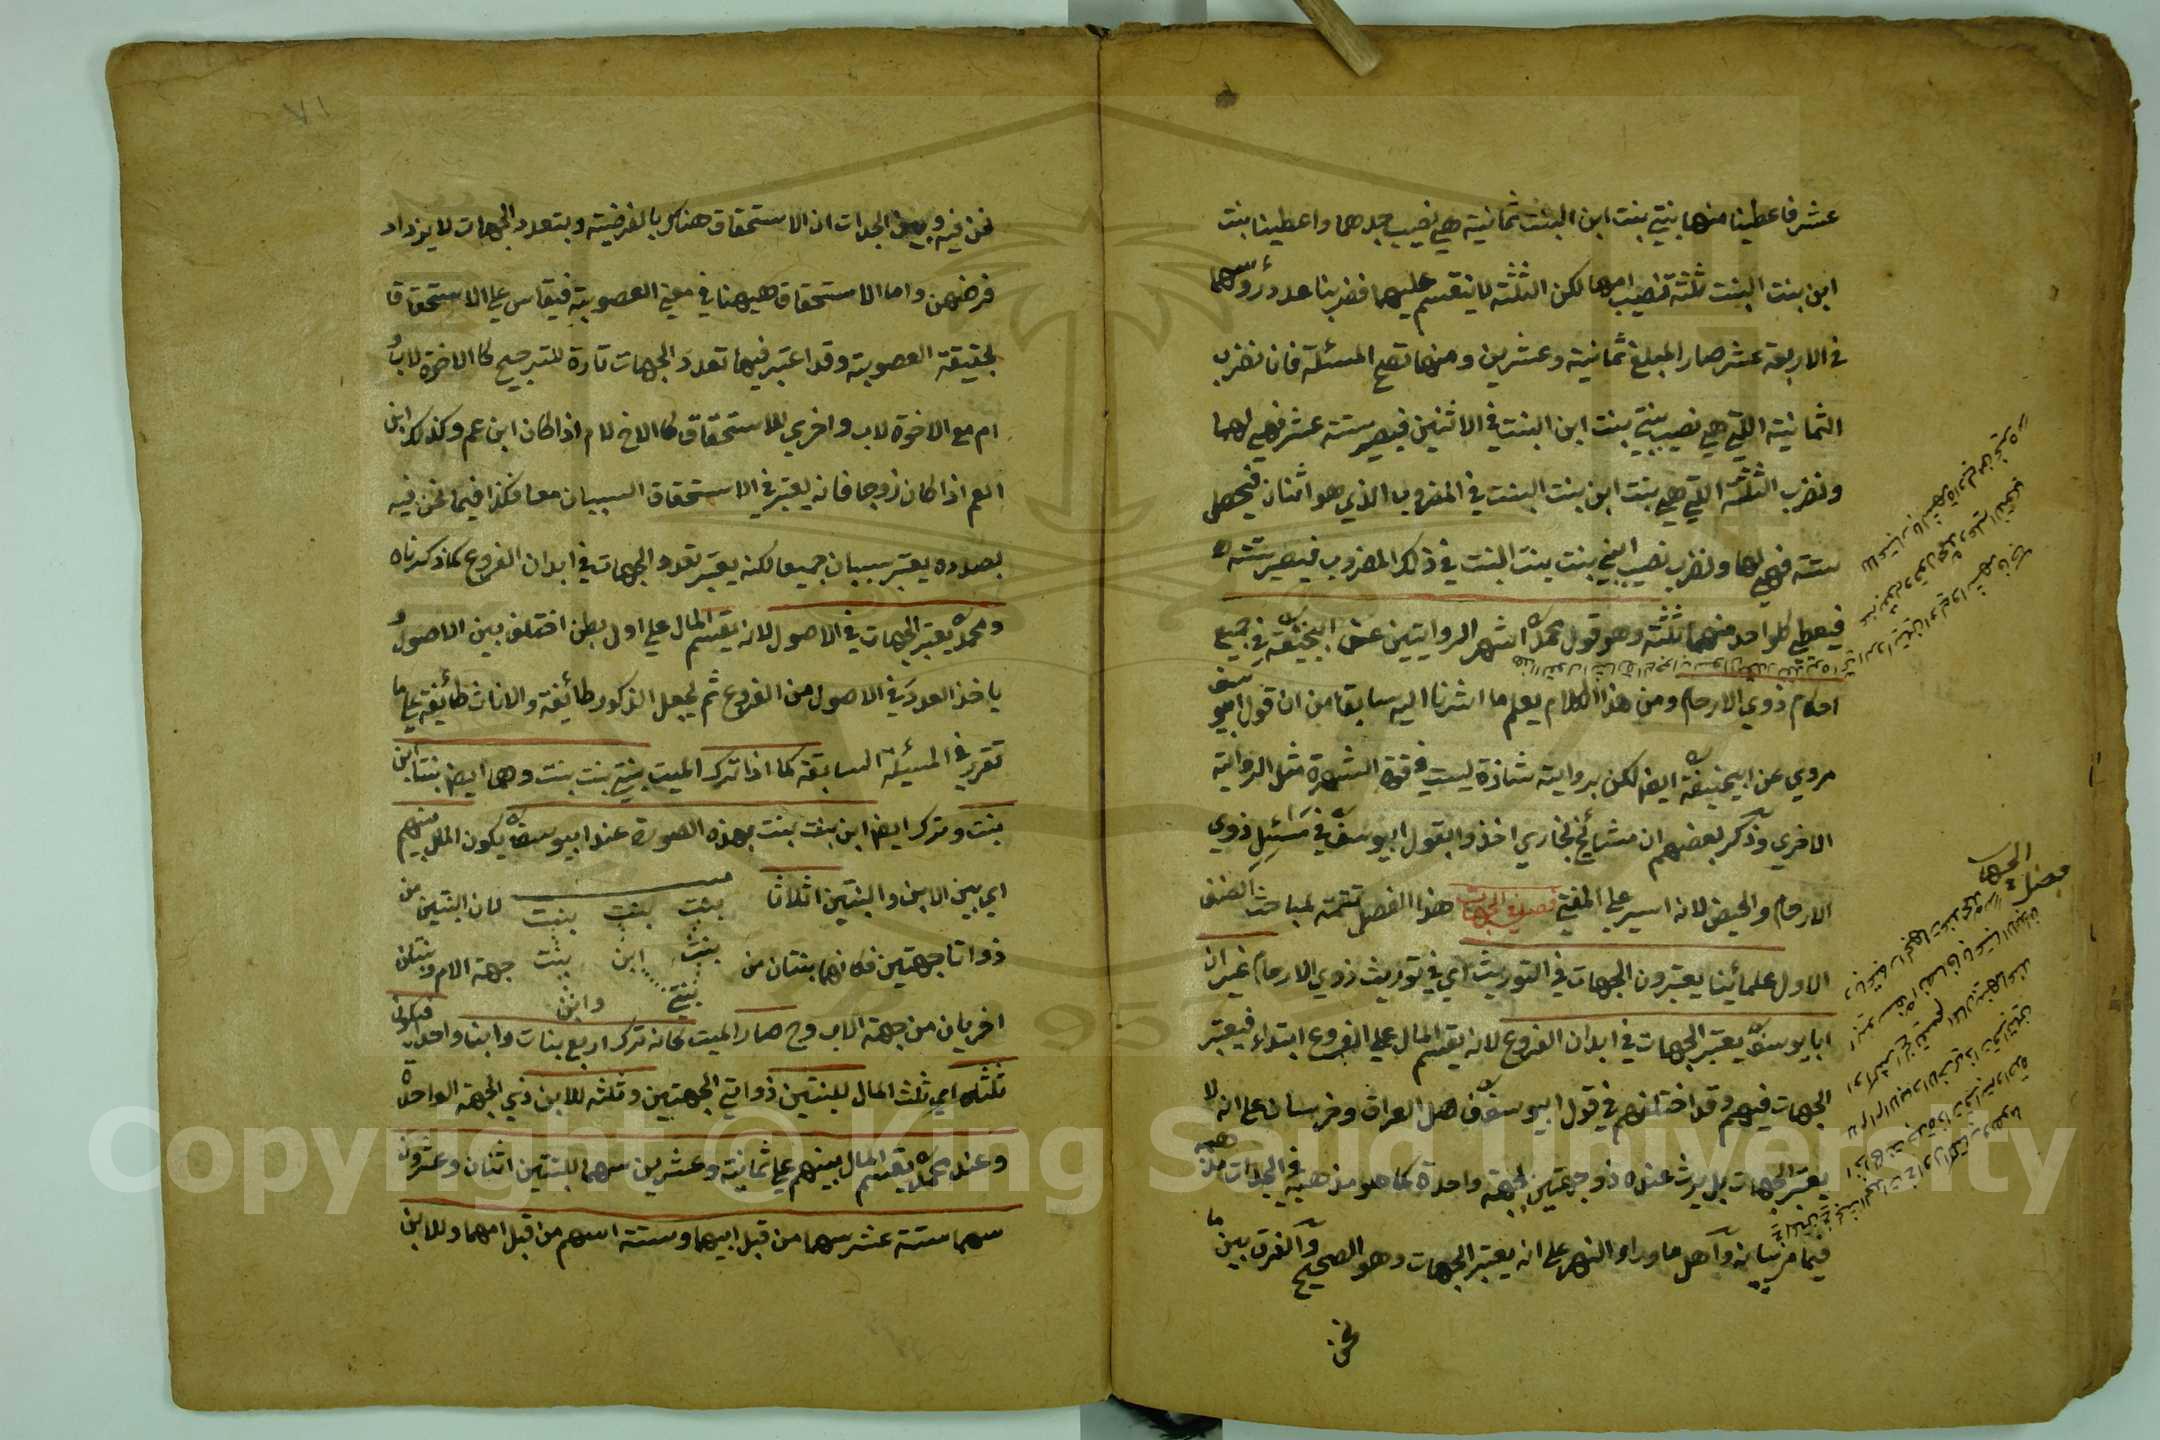 عشر فاعطينا منها بنتي بنت ابن البنت ثمانية هي نصيب جدهما واعطينا بنت
ابن بنت البنت ثلثة نصيب امها لكن الثلثة لا تنقسم عليهما فضربنا عدد رؤسهما
في الاربعة عشر صار المبلغ ثمانية وعشرين ومنها تصح المسئلة فانا نضرب
الثمانية التي هي نصيب بنتي بنت ابن البنت في الاثنين فيصير ستة عشر فهي لهما
ونضرب الثلثة التي هي بنت ابن بنت البنت في المضروب الذي هو اثنان فيحصل
ستة فهي لها ونضرب نصيب ابني بنت بنت البنت في ذلك المضروب فيصير ستة
فيعطي كل واحد منهما ثلثة وهو قول محمد اشهر الروايتين عن ابيحنيفة في جميع
احكام ذوي الارحام ومن هذا الكلام يعلم ما اشرنا اليه سابقا من ان قول ابو يوسف
مروي عن ابيحنيفة ايضا لكن برواية شاذة ليست في قوة الشهرة مثل الرواية
الاخري وذكر بعضهم ان مشائخ بخاري اخذوا بقول ابيوسف في مسائل ذوي
الارحام والحيض لانه ايسر علي المفتي فصل في الجهات هذا الفصل تتمة لمباحث الصنف
الاول علمائنا يعتبرون الجهات في التوريث اي في توريث ذوي الارحام غير ان
ابا يوسف يعتبر الجهات في ابدان الفروع لانه يقسم المال علي الفروع ابتداء فيعتبر
الجهات فيهم وقد اختلفهم في قول ابيوسف فن اهل العراق وخرسان علي انه لا
يعتبر الجهات بل يرث عنده ذو جهتين بجهة واحدة كما هو مذهبه في الجدات
فيما مر بيانه وآهل ما وراء النهر علي انه يعتبر الجهات وهو الصحيح والفرق بين ما
نحن
فصل في الجهات
٧١
نحن فيه وبين الجدات ان الاستحقاق هناك بالفرضية وبتعدد الجهات لا يزداد
فرضهن واما الاستحقاق هيهنا في معني العصوبة فيقاس علي الاستحقاق
بحقيقة العصوبة وقد اعتبر فيها تعدد الجهات تارة للترجيح كالاخوة لاب و
ام مع الاخوة لاب واخري للاستحقاق كالاخ لام اذا كان ابن عم وكذلك ابن
العم اذا كان زوجا فانه يعتبر في الاستحقاق السببان معا فكذا فيما نحن فيه
بصدده يعتبر سببان جميعا لكنه يعتبر تعدد الجهات في ابدان الفروع كما ذكرناه
ومحمد يعتبر الجهات في الاصول لانه يقسم المال علي اول بطن اختلف بين الاصول و
ياخذ العدد في الاصول من الفروع ثم يجعل الذكور طائفة والاناث طائفة علي ما
تقرر في المسئلة السابقة كما اذا ترك الميت بنتي بنت بنت وهما ايضا بنتا ابن
بنت وترك ايضا ابن بنت بنت بهذه الصورة عند ابيوسف يكون المال بينهم
اي بين الابن والبنتين اثلاثا
بنت بنت بنت
لان البنتين من
ذواتا جهتين فكانهما بنتان من
بنت ابن بنت
جهة الام وبنتان
بنتي وابن
اخريان من جهة الاب وح صار الميت كانه ترك اربع بنات وابنا واحدا فيكون
ثلثاه اي ثلثا المال للبنتين ذواتي الجهتين وثلثه للابن ذي الجهة الواحدة
وعند محمد يقسم المال بينهم علي ثمانية وعشرين سهما للبنتين اثنان وعشرون
سهما ستة عشر سهما من قبل ابيهما وستة اسهم من قبل امهما وللابن
Copyright © King Saud University
1957